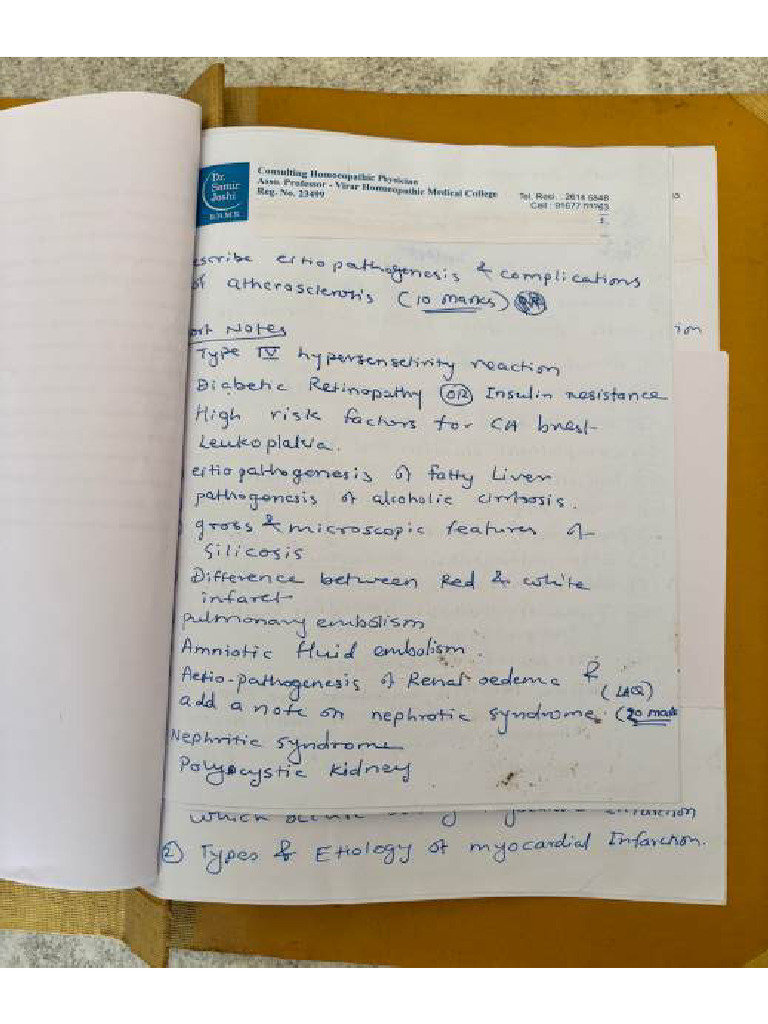 Dr.
Samir
Joshi
B.H.M.S.
Consulting Homoeopathic Physician
Asso. Professor - Virar Homoeopathic Medical College
Reg. No. 23499
Tel. Resi. : 2614 6848
escribe etiopathogenesis & complications
of atherosclerosis (10 marks)
ort Notes
Type IV hypersensetivity reaction
Diabetic Retinopathy OR Insulin resistance
High risk factors for CA brest
Leukoplakia.
etiopathogenesis of fatty Liver
pathogenesis of alcoholic cirrhosis.
gross & microscopic features of
Silicosis
Difference between Red & white
infarct
pulmonary embolism
Amniotic fluid embolism.
Aetio-pathogenesis of Renal oedema & (LAQ)
add a note on nephrotic syndrome. (20 mark
Nephritic syndrome
Polycystic kidney
which
2) Types & Etiology of myocardial Infarction.
ion